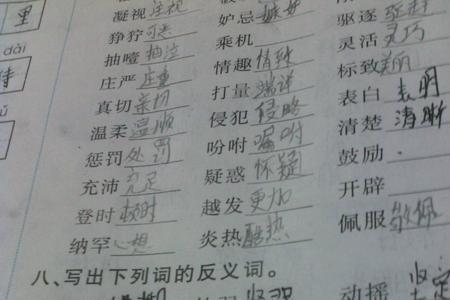 里
凝视 注视 妒忌 嫉妒 驱逐 驱赶
狰狞 可恶 乘机 灵活 灵巧
dài 抽噎 抽泣 情趣 情致 标致 美丽
庄严 庄重 打量 端详 表白 表明
真切 亲切 侵犯 侵略 清楚 清晰
温柔 温顺 吩咐 嘱咐 鼓励
惩罚 处罚 疑惑 怀疑 开辟
充沛 充足 越发 更加 佩服 敬佩
登时 顿时 炎热 酷热
纳罕
八、写出下列词的反义词。
动摇 坚定